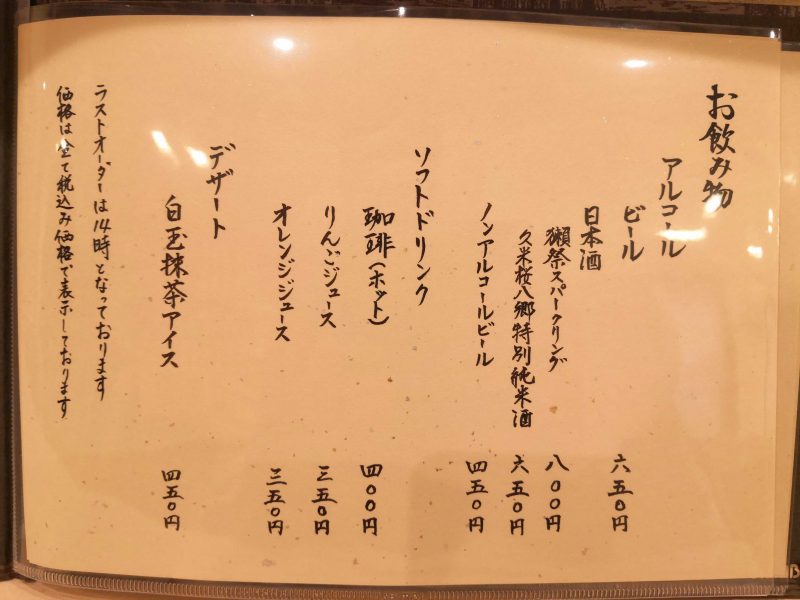 お飲み物
アルコール
ビール 六五〇円
日本酒
獺祭スパークリング 八〇〇円
久米桜八郷特別純米酒 六五〇円
ノンアルコールビール 四五〇円
ソフトドリンク
珈琲(ホット) 四〇〇円
りんごジュース 三五〇円
オレンジジュース 三五〇円
デザート
白玉抹茶アイス 四五〇円
ラストオーダーは14時となっております
価格は全て税込み価格で表示しております